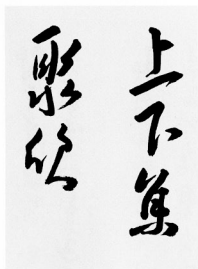 上下集
聚